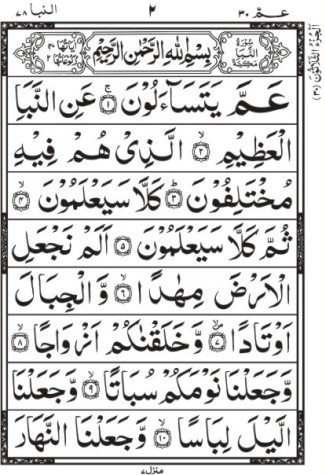 النبا ٧٨
٢
عم ٣٠
اَلْجُزْءُ الثَّلَاثُوْنَ (٣٠)
سُوْرَةُ النَّبَاِ مَكِّيَّةٌ
بِسْمِ اللّٰهِ الرَّحْمٰنِ الرَّحِيْمِ
اٰيَاتُهَا ٤٠ رُكُوْعَاتُهَا ٢
عَمَّ يَتَسَآءَلُوْنَ ۚ﴿١﴾ عَنِ النَّبَاِ
الْعَظِيْمِ ۙ﴿٢﴾ الَّذِىْ هُمْ فِيْهِ
مُخْتَلِفُوْنَ ؕ﴿٣﴾ كَلَّا سَيَعْلَمُوْنَ ۙ﴿٤﴾
ثُمَّ كَلَّا سَيَعْلَمُوْنَ ﴿٥﴾ اَلَمْ نَجْعَلِ
الْاَرْضَ مِهٰدًا ۙ﴿٦﴾ وَّ الْجِبَالَ
اَوْتَادًا ۪ۙ﴿٧﴾ وَّخَلَقْنٰكُمْ اَزْوَاجًا ۙ﴿٨﴾
وَّجَعَلْنَا نَوْمَكُمْ سُبَاتًا ۙ﴿٩﴾ وَّجَعَلْنَا
الَّيْلَ لِبَاسًا ۙ﴿١٠﴾ وَّجَعَلْنَا النَّهَارَ
منزل ٧